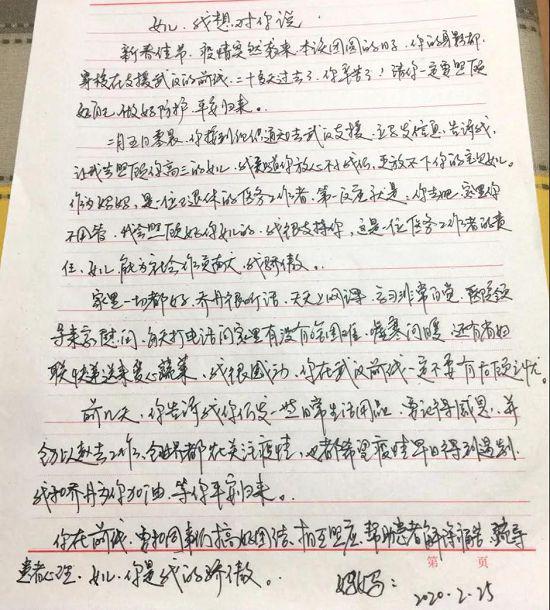 女儿,我想对你说
新春佳节,疫情突然来袭,本该团圆的日子,你的身影都
穿梭在支援武汉的前线,二十多天过去了,你辛苦了!请你一定要照顾
好自己,做好防护,平安归来。
二月五日零晨,你接到组织通知去武汉支援,立即发信息,告诉我,
让我去照顾你高三的女儿,我知道你放心不下我们,更放不下你的宝贝女儿。
作为妈妈,是一位已退休的医务工作者,第一反应就是,你去吧,家里你
不用管,我会照顾好你女儿的,我很支持你,这是一位医务工作者的责
任,女儿,能为社会作贡献,我骄傲。
家里一切都好,乔丹很听话,天天上网课,学习非常自觉,医院领
导来家慰问,每天打电话问家里有没有啥困难,嘘寒问暖,还有省妇
联快递送来爱心蔬菜,我很感动,你在武汉前线一定不要有后顾之忧。
前几天,你告诉我你们发一些日常生活用品,要记得感恩,并
全力以赴去工作,全世界都在关注疫情,也都希望疫情早日得到遏制,
我和乔丹为你加油,等你平安归来。
你在前线,要和同事们搞好团结,相互照应,帮助患者解除病苦,疏导
患者心理,女儿,你是我的骄傲。
第 页
妈妈:
2020.2.25